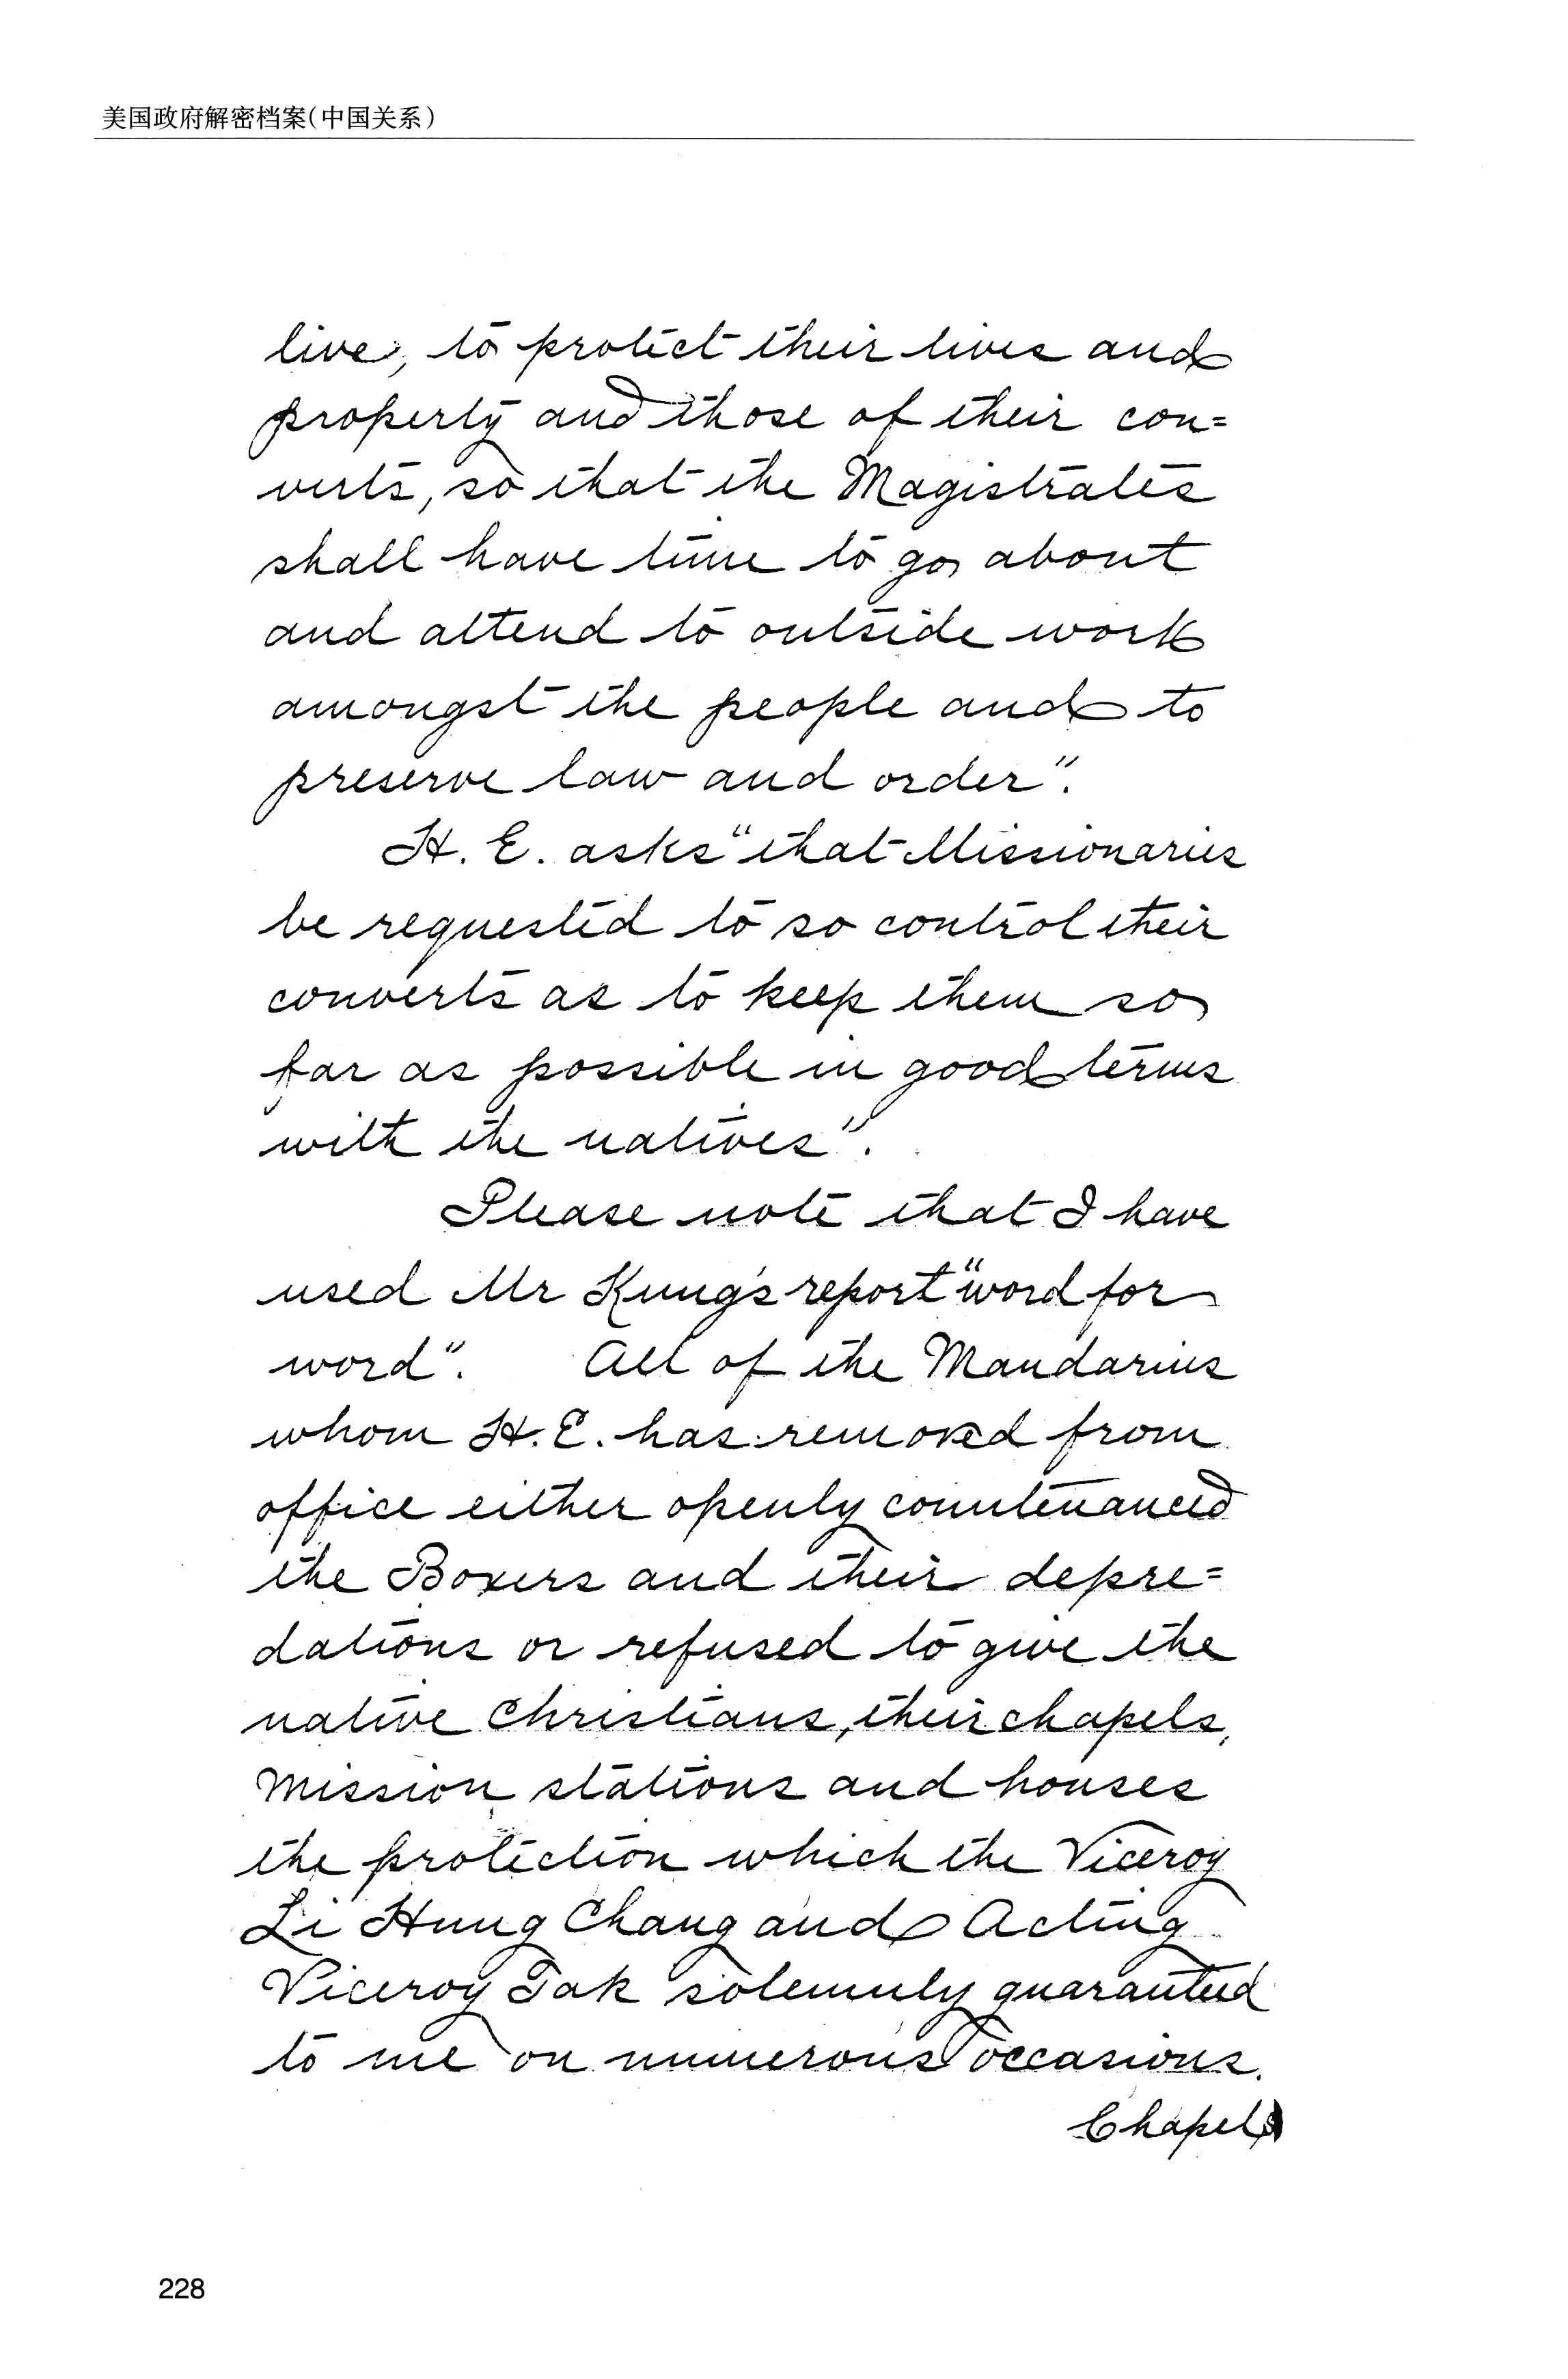 美国政府解密档案(中国关系)
live, to protect their lives and
property and those of their con=
verts, so that the Magistrates
shall have time to go about
and attend to outside work
amongst the people and to
preserve law and order".
H. E. asks "that Missionaries
be requested to so control their
converts as to keep them so
far as possible in good terms
with the natives".
Please note that I have
used Mr Kung's report "word for
word". All of the Mandarins
whom H. E. has removed from
office either openly countenanced
the Boxers and their depre=
dations or refused to give the
native Christians, their chapels,
Mission stations and houses
the protection which the Viceroy
Li Hung Chang and Acting
Viceroy Tak solemnly guaranteed
to me on numerous occasions.
Chapels
228